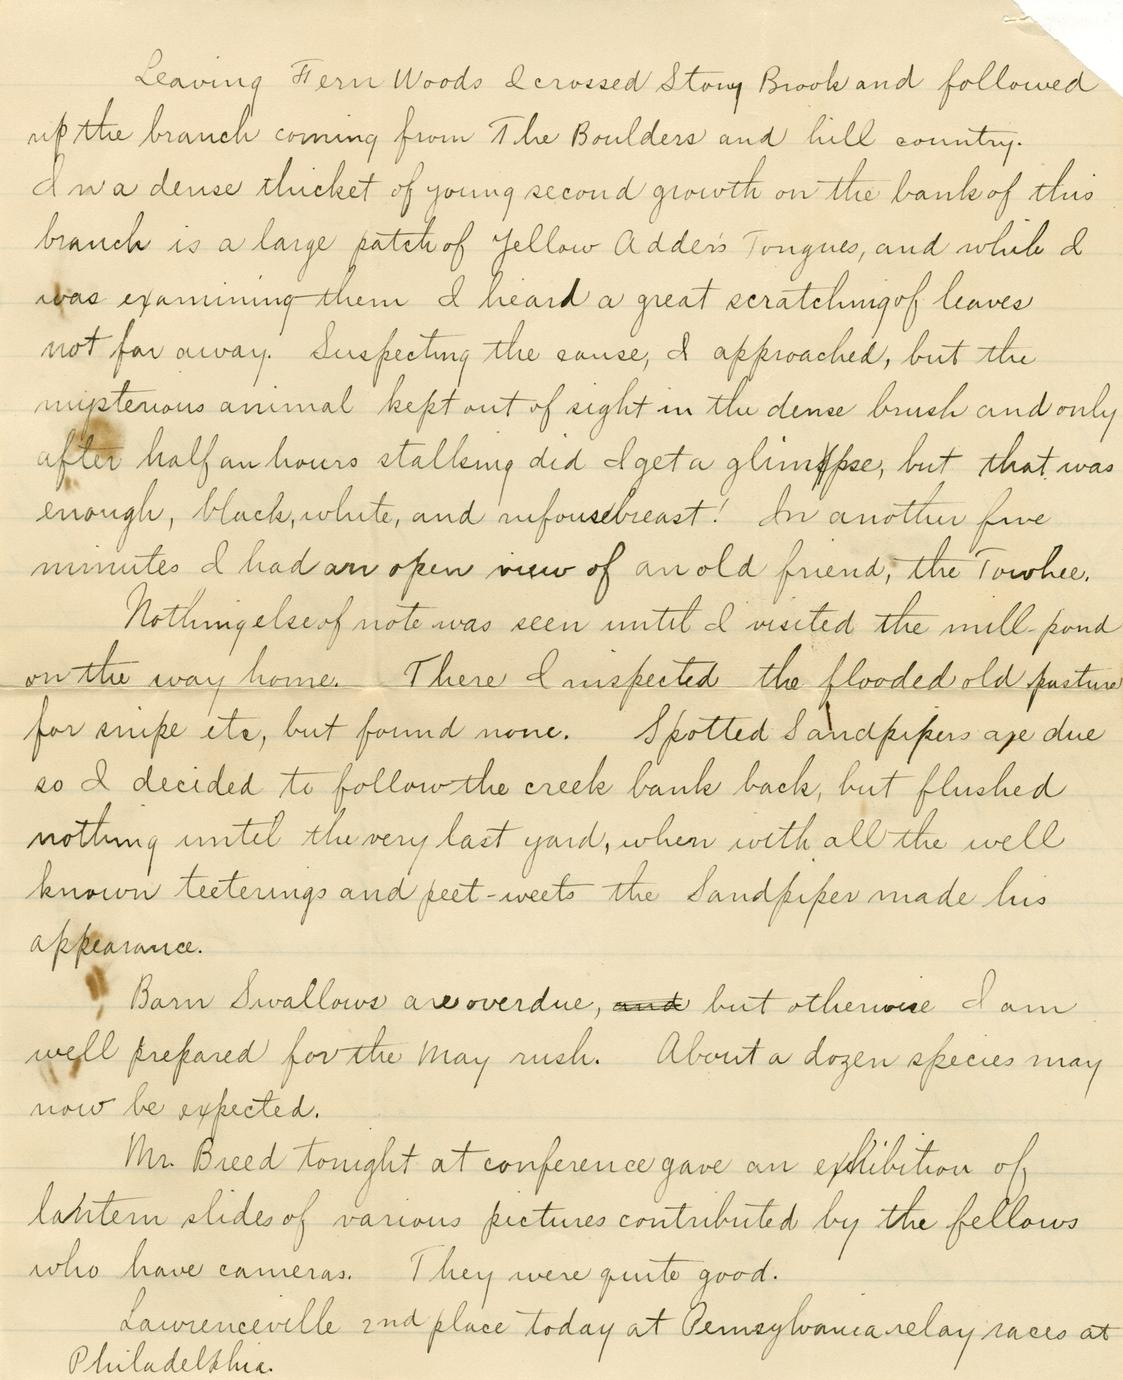 Leaving Fern Woods I crossed Stony Brook and followed
up the branch coming from The Boulders and hill country.
In a dense thicket of young second growth on the bank of this
branch is a large patch of Yellow Adder's Tongues, and while I
was examining them I heard a great scratching of leaves
not far away. Suspecting the cause, I approached, but the
mysterious animal kept out of sight in the dense brush and only
after half an hours stalking did I get a glimpse, but that was
enough, black, white, and rufous breast! In another five
minutes I had an open view of an old friend, the Towhee.
Nothing else of note was seen until I visited the mill-pond
on the way home. There I inspected the flooded old pasture
for snipe etc, but found none. Spotted Sandpipers are due
so I decided to follow the creek bank back, but flushed
nothing until the very last yard, when with all the well
known teeterings and peet-weets the Sandpiper made his
appearance.
Barn Swallows are overdue, and but otherwise I am
well prepared for the May rush. About a dozen species may
now be expected.
Mr. Breed tonight at conference gave an exhibition of
lantern slides of various pictures contributed by the fellows
who have cameras. They were quite good.
Lawrenceville 2nd place today at Pennsylvania relay races at
Philadelphia.